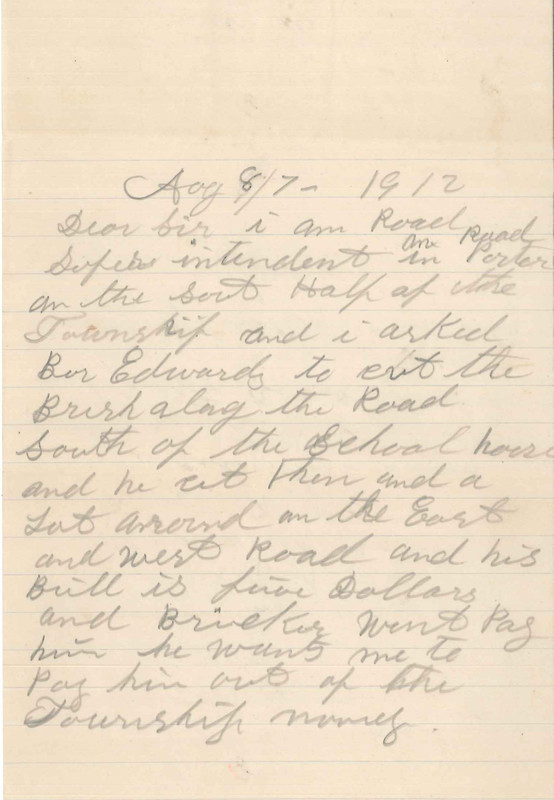 Aog 8/7- 1912
Dear Sir i am Road
Soper intendent in Porter
on the Sout Half of the
Township and i asked
Bor Edwards to cut the
Brush along the Road
South of the School house
and he cut them and a
Lot arround on the East
and west Road and his
Bill is five Dollars
and Bricker wont Pay
him he wants me to
Pay him out of the
Township money.